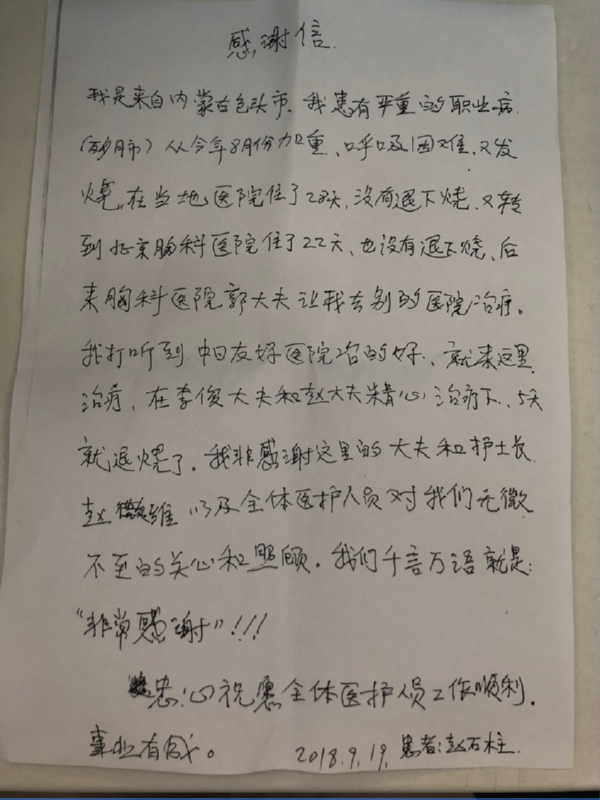 感谢信.
我是来自内蒙古包头市、我患有严重的职业病
(矽肺)从今年8月份加重、呼吸困难、又发
烧,在当地医院住了28天,没有退下烧、又转
到北京胸科医院住了22天、也没有退下烧、后
来胸科医院郭大夫让我去别的医院治疗。
我打听到中日友好医院治的好、就来这里
治疗,在李俊大夫和赵大夫精心治疗下、5天
就退烧了。我非感谢这里的大夫和护士长
赵 维以及全体医护人员对我们无微
不至的关心和照顾。我们千言万语就是:
“非常感谢”!!!
忠心祝愿全体医护人员工作顺利.
事业有成。 2018.9.19, 患者:赵石柱.